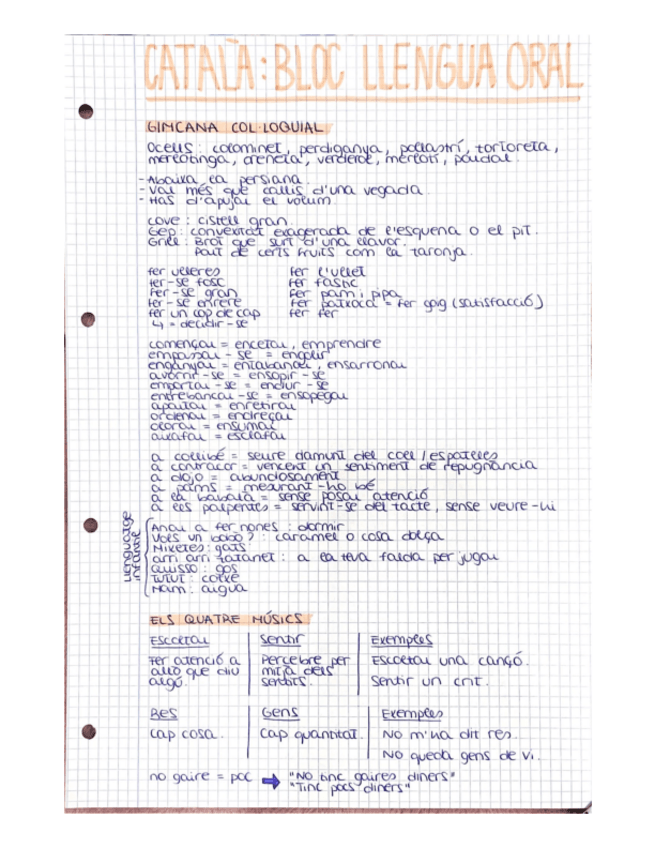 CATALÀ: BLOC LLENGUA ORAL
GIMCANA COL·LOQUIAL
Ocells: colominet, perdiganya, pollastrí, tortoreta,
merlotinga, oreneta, verderol, merlot, pardal.
- Abaixa la persiana.
- Val més que callis d'una vegada.
- Has d'apujar el volum.
Cove: cistell gran.
Gep: convexitat exagerada de l'esquena o el pit.
Grill: Brot que surt d'una llavor.
Part de certs fruits com la taronja.
fer velleres fer l'ullet
fer-se fosc fer fàstic
fer-se gran fer pam i pipa
fer-se enrere fer patxoca = fer goig (satisfacció)
fer un cop de cap fer fer
↳ = decidir-se
començar = encetar, emprendre
empassar-se = engolir
enganyar = entabanar, ensarronar
avorrir-se = ensopir-se
emportar-se = endur-se
entrebancar-se = ensopegar
apartar = enretirar
ordenar = endreçar
olorar = ensumar
aixafar = esclafar
a collibè = seure damunt del coll / espatlles
a contracor = vencent un sentiment de repugnància
a dojo = abundosament
a pams = mesurant-ho bé
a la babalà = sense posar atenció
a les palpentes = servint-se del tacte, sense veure-hi
Llenguatge infantil
Anar a fer nones: dormir
Vols un bobo?: caramel o cosa dolça
Mixetes: gats
arri arri tatanet: a la teva falda per jugar
Quisso: gos
Tutut: cotxe
Mam: aigua
ELS QUATRE MÚSICS
Escoltar Sentir Exemples
Fer atenció a Percebre per Escoltar una cançó.
allò que diu mitjà dels Sentir un crit.
algú. sentits.
Res Gens Exemples
Cap cosa. Cap quantitat. No m'ha dit res.
No queda gens de vi.
no gaire = poc ➡ "No tinc gaires diners"
"Tinc pocs diners"